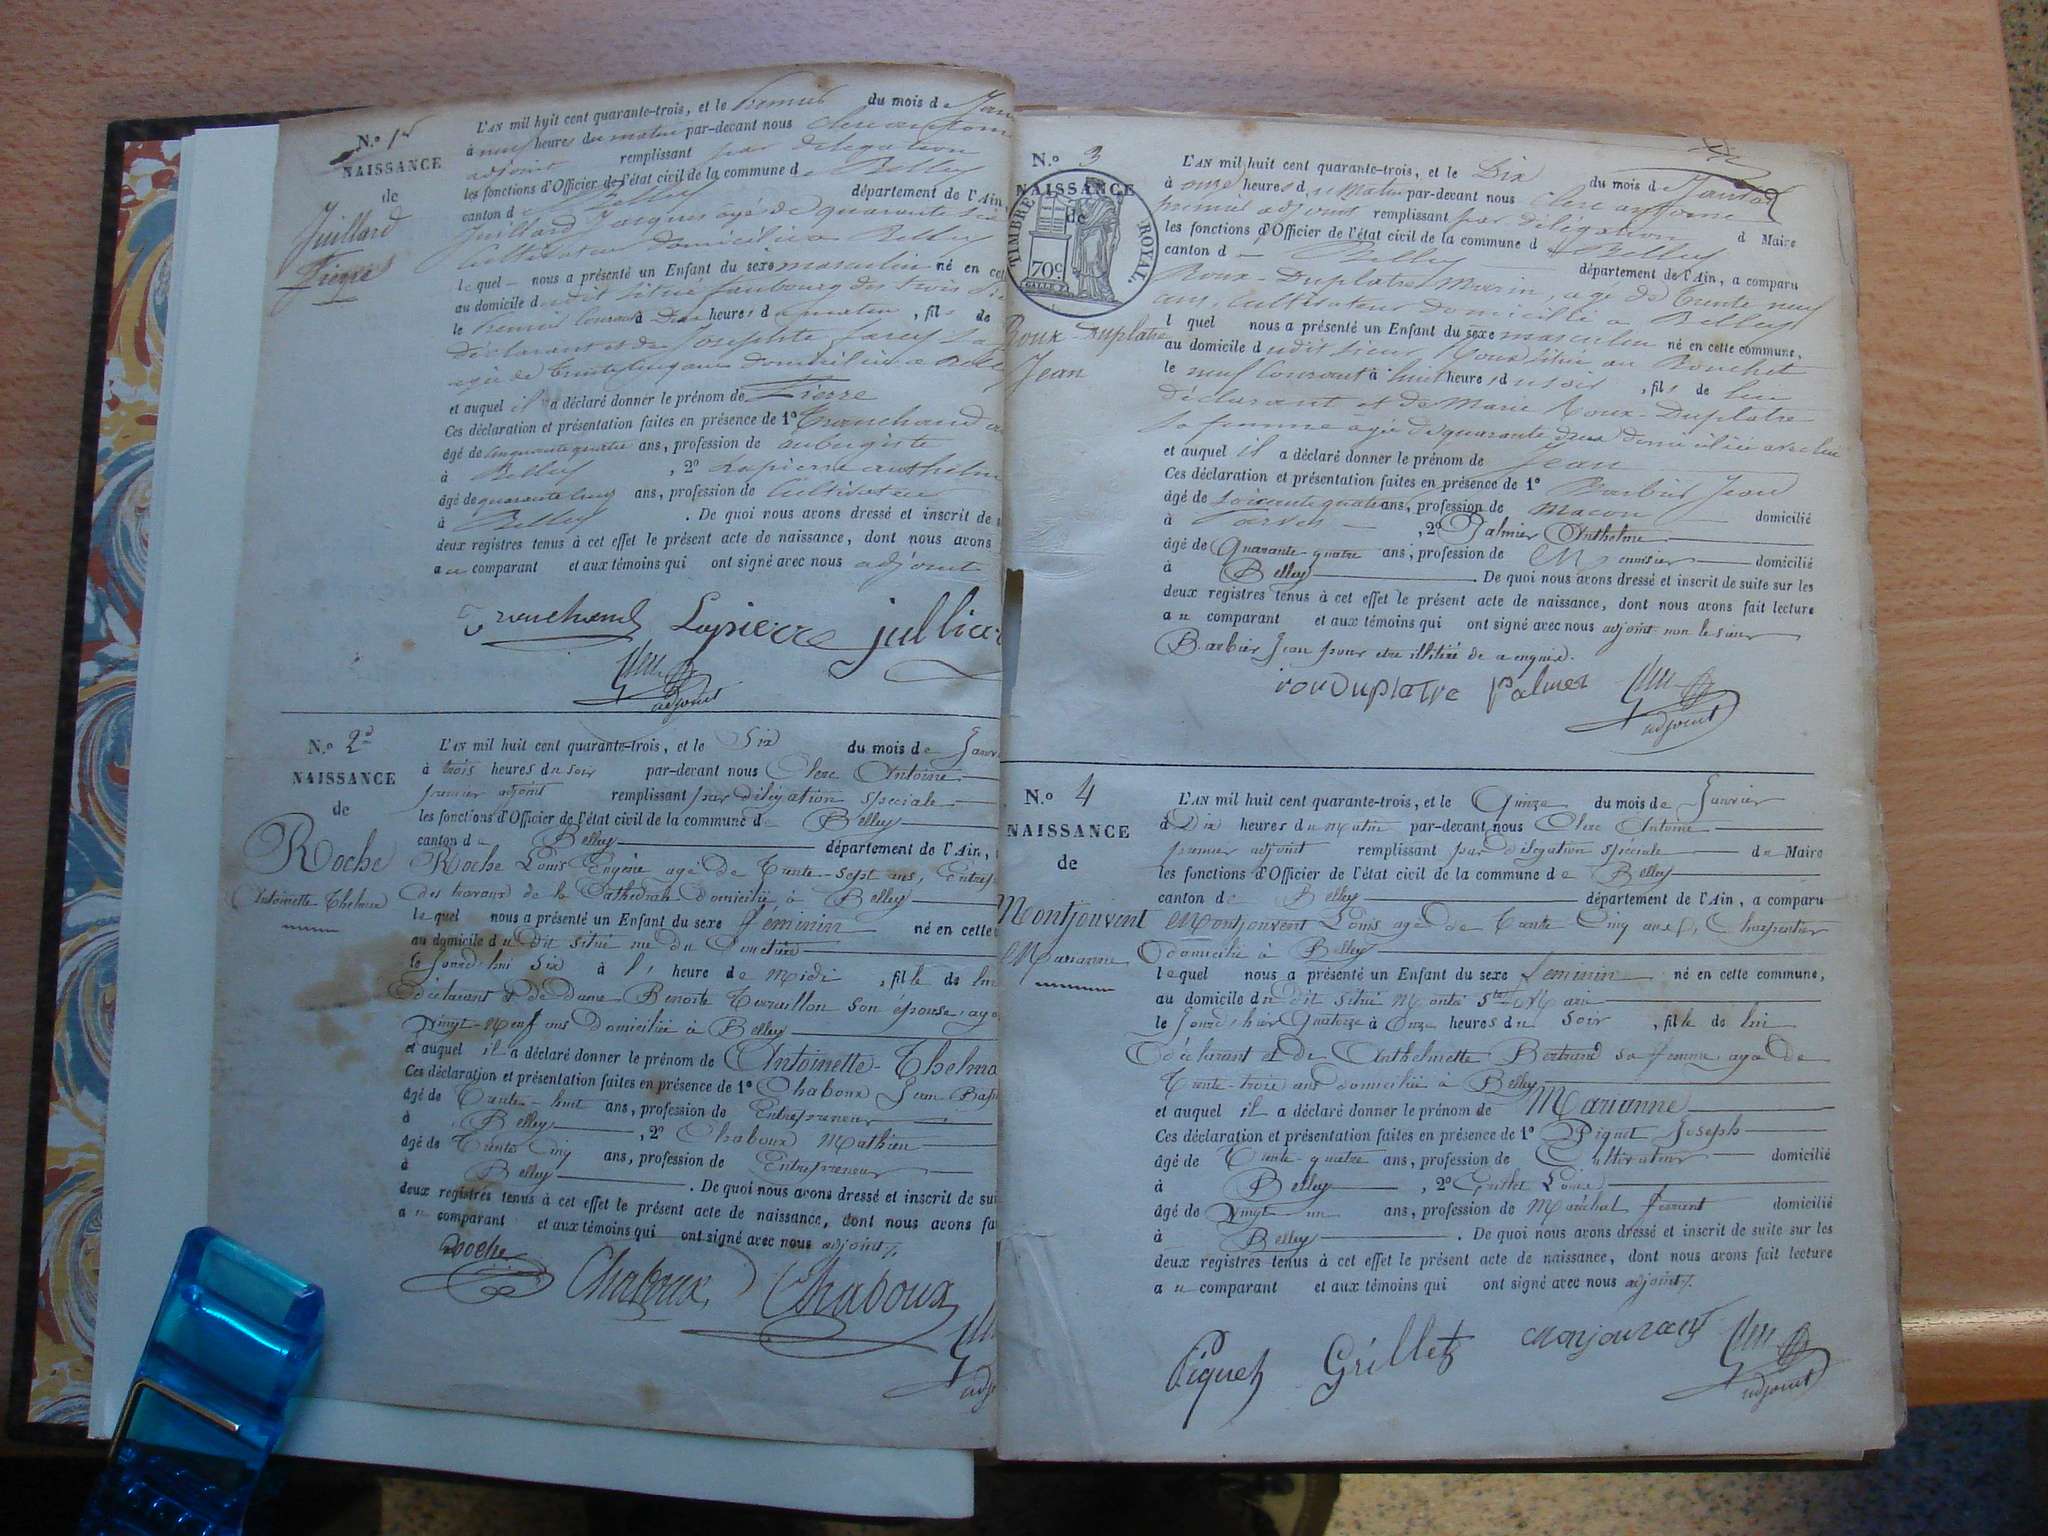 N.° 1er
NAISSANCE
de
Juillard
Pierre
L'AN mil huit cent quarante-trois, et le premier du mois de Jan
à neuf heures du matin par-devant nous Clerc antoine
adjoint remplissant par délégation
les fonctions d'Officier de l'état civil de la commune d Belley
canton d Belley département de l'Ain,
Juillard Jacques agé de quarante
Cultivateur domicilié à Belley
lequel nous a présenté un Enfant du sexe masculin né en cet
au domicile dudit situé faubourg des trois
le premier Courant à heures d matin, fils de
déclarant et de Josephte
agée de trente cinq ans domiciliée à Belley
et auquel il a déclaré donner le prénom de Pierre
Ces déclaration et présentation faites en présence de 1° Trouchaud
âgé de cinquante quatre ans, profession de aubergiste
à Belley, 2° Lapierre anthelme
âgé de quarante cinq ans, profession de Cultivateur
à Belley. De quoi nous avons dressé et inscrit de
deux registres tenus à cet effet le présent acte de naissance, dont nous avons
au comparant et aux témoins qui ont signé avec nous adjoint
Trouchaud Lapierre julliar
Clerc
adjoint
N.° 2
NAISSANCE
de
Roche
Antoinette Thelma
L'AN mil huit cent quarante-trois, et le Six du mois de Janv
à trois heures du soir par-devant nous Clerc Antoine
premier adjoint remplissant par délégation speciale
les fonctions d'Officier de l'état civil de la commune de Belley
canton de Belley département de l'Ain,
Roche Louis Eugène agé de Trente-sept ans, Entrep
des travaux de la Cathédrale domicilié à Belley
lequel nous a présenté un Enfant du sexe féminin né en cette
au domicile du dit situé rue du
le Jourd'hui Six à l' heure de midi, fille de lui
déclarant et de dame Benoite son épouse, agé
Vingt-Neuf ans domiciliée à Belley
et auquel il a déclaré donner le prénom de Antoinette-Thelma
Ces déclaration et présentation faites en présence de 1° Chaboux Jean Bap
âgé de Trente-huit ans, profession de Entrepreneur
à Belley, 2° Chaboux Mathieu
âgé de Trente Cinq ans, profession de Entrepreneur
à Belley. De quoi nous avons dressé et inscrit de sui
deux registres tenus à cet effet le présent acte de naissance, dont nous avons fa
au comparant et aux témoins qui ont signé avec nous adjoint
Roche Chaboux Chaboux
N.° 3
NAISSANCE
de
TIMBRE ROYAL.
70c.
Roux-Duplatre
Jean
L'AN mil huit cent quarante-trois, et le Dix du mois de Janvier
à onze heures du Matin par-devant nous Clerc antoine
premier adjoint remplissant par délégation d Maire
les fonctions d'Officier de l'état civil de la commune d Belley
canton d Belley département de l'Ain, a comparu
Roux-Duplatre, agé de trente neuf
ans, Cultivateur domicilié à Belley
lequel nous a présenté un Enfant du sexe masculin né en cette commune,
au domicile dudit sieur Roux situé au Bouchet
le neuf Courant à huit heures du soir, fils de lui
déclarant et de Marie Roux-Duplatre
sa femme agée de quarante deux domiciliée avec lui
et auquel il a déclaré donner le prénom de Jean
Ces déclaration et présentation faites en présence de 1° Barbier Jean
âgé de Soixante quatre ans, profession de Macon domicilié
à Parves, 2° Palmier Anthelme
âgé de Quarante-quatre ans, profession de Menuisier domicilié
à Belley. De quoi nous avons dressé et inscrit de suite sur les
deux registres tenus à cet effet le présent acte de naissance, dont nous avons fait lecture
au comparant et aux témoins qui ont signé avec nous adjoint non le sieur
Barbier Jean pour etre illitéré de ce enquis.
rouDuplatre Palmier Clerc
adjoint
N.° 4
NAISSANCE
de
Montjouvent
Marianne
L'AN mil huit cent quarante-trois, et le Quinze du mois de Janvier
à Dix heures du Matin par-devant nous Clerc Antoine
premier adjoint remplissant par délégation speciale de Maire
les fonctions d'Officier de l'état civil de la commune de Belley
canton de Belley département de l'Ain, a comparu
Montjouvent Louis agé de Trente Cinq ans, Charpentier
domicilié à Belley
lequel nous a présenté un Enfant du sexe féminin né en cette commune,
au domicile du dit situé Montée Ste Marie
le Jourd'hier Quatorze à Onze heures du Soir, fille de lui
déclarant et de Anthelmette Bertrand sa femme, agée de
Trente-trois ans domiciliée à Belley
et auquel il a déclaré donner le prénom de Marianne
Ces déclaration et présentation faites en présence de 1° Piquet Joseph
âgé de Trente-quatre ans, profession de Cultivateur domicilié
à Belley, 2° Grillet Louis
âgé de Vingt un ans, profession de Maréchal ferrant domicilié
à Belley. De quoi nous avons dressé et inscrit de suite sur les
deux registres tenus à cet effet le présent acte de naissance, dont nous avons fait lecture
au comparant et aux témoins qui ont signé avec nous adjoint
Piquet Grillet monjouvent Clerc
adjoint